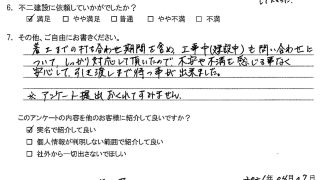 6. 不二建設に依頼していかがでしたか？
☑満足 □やや満足 □普通 □やや不満 □不満
7. その他、ご自由にお書きください。
着工までの打ち合わせ期間を含め、工事中(建設中)も問い合わせに
ついて、しっかり対応して頂いたので、不安や不満を感じる事なく
安心して、引き渡しまで待つ事が出来ました。
※アンケート提出おくれてすみません。
このアンケートの内容を他のお客様に紹介して良いですか？
☑ 実名で紹介して良い
□ 個人情報が判明しない範囲で紹介して良い
□ 社外から一切出さないでほしい